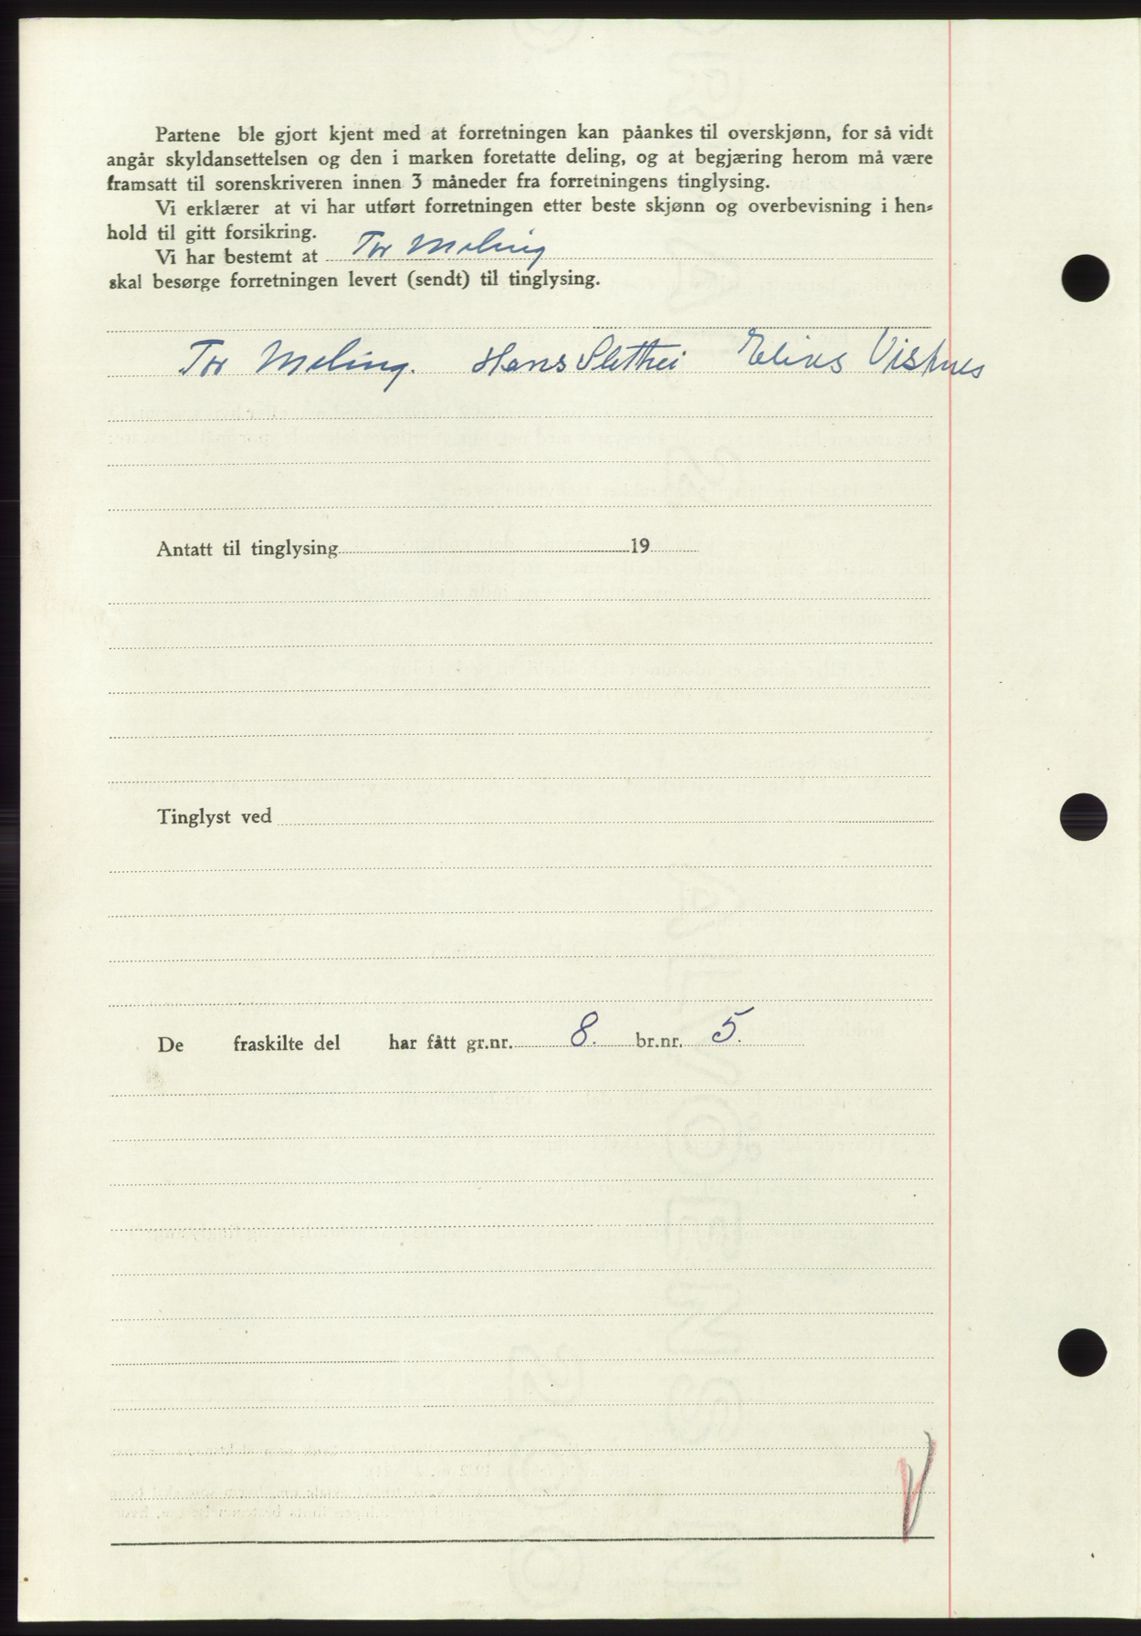 Partene ble gjort kjent med at forretningen kan påankes til overskjønn, for så vidt
angår skyldansettelsen og den i marken foretatte deling, og at begjæring herom må være
framsatt til sorenskriveren innen 3 måneder fra forretningens tinglysing.
Vi erklærer at vi har utført forretningen etter beste skjønn og overbevisning i hen-
hold til gitt forsikring.
Vi har bestemt at Tor Meling
skal besørge forretningen levert (sendt) til tinglysing.
Tor Meling. Hans Slettei Elias Visknes
Antatt til tinglysing 19
Tinglyst ved
De fraskilte del har fått gr.nr. 8. br.nr. 5.